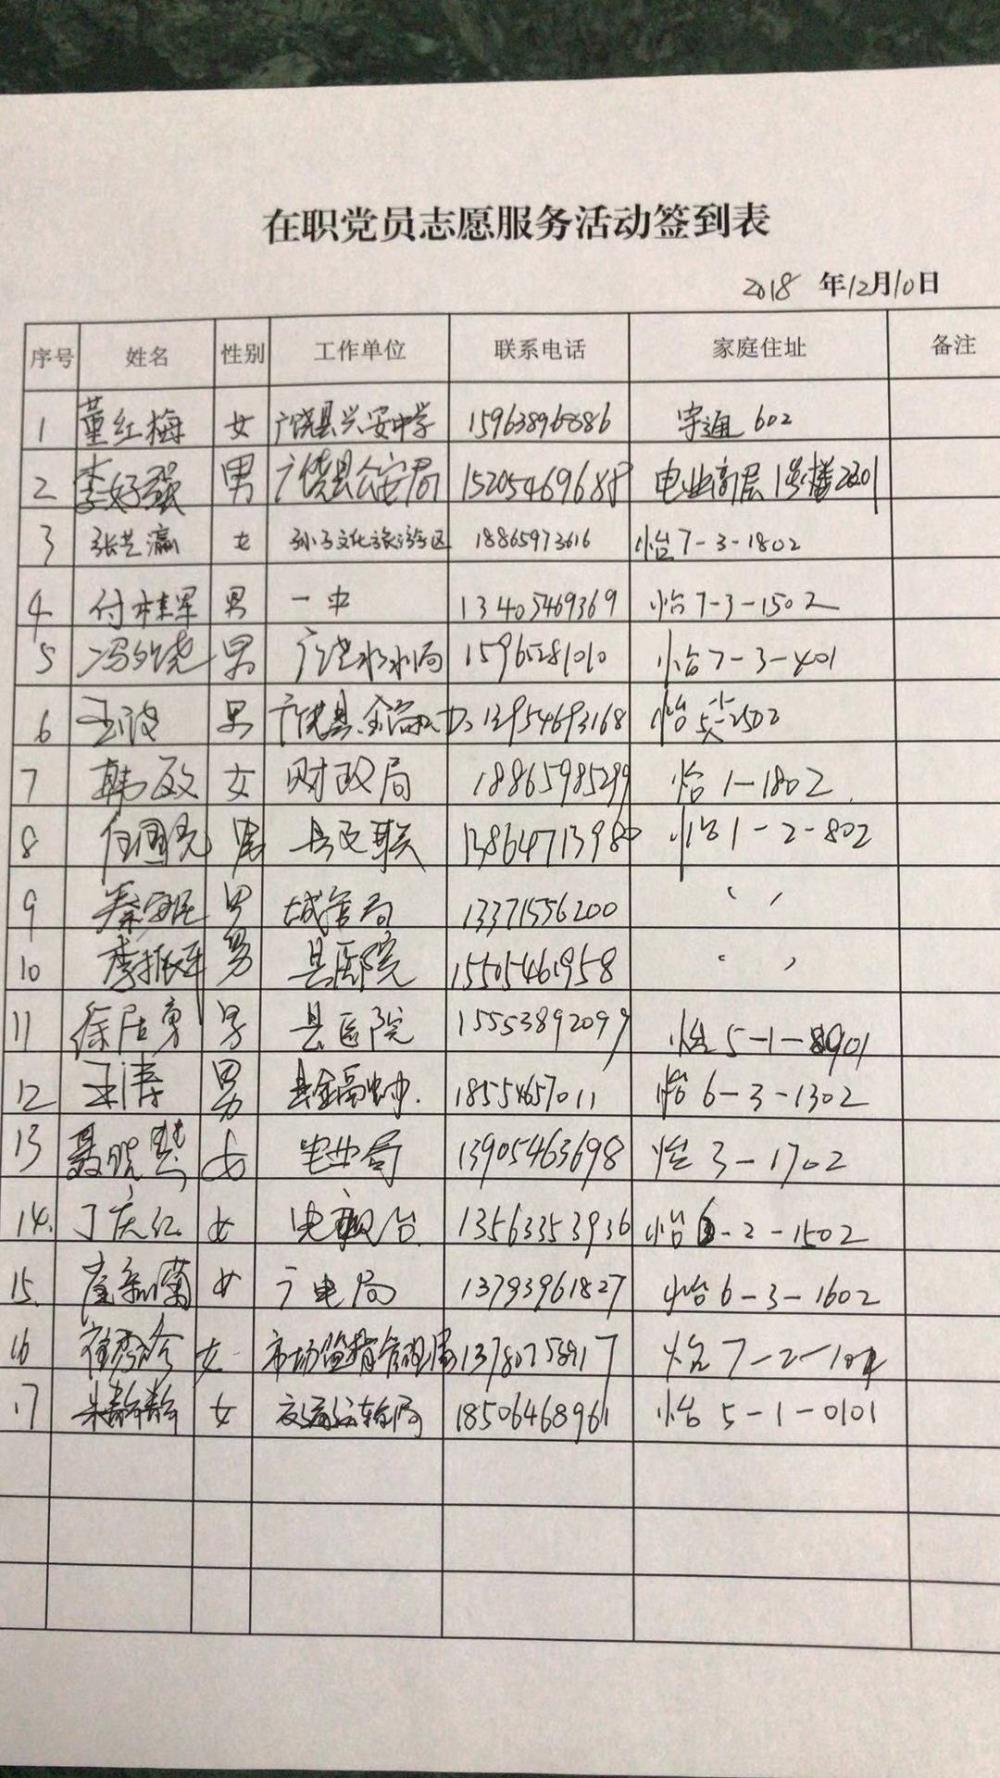 在职党员志愿服务活动签到表
2018 年12月10日
序号 姓名 性别 工作单位 联系电话 家庭住址 备注
1 董红梅 女 广饶县兴安中学 15963896886 602
2 李好强 男 广饶县公安局 15205469688 电业高层1号楼2301
3 张艺瀛 女 孙子文化旅游区 18865973616 怡7-3-1802
4 付桂军 男 一中 13405469369 怡7-3-1502
5 男 广饶水利局 15965281010 怡7-3-401
6 王波 男 广饶县金融办 13954693168 怡
7 韩敏 女 财政局 18865985299 怡1-1802
8 任国亮 男 县文联 13864713980 怡1-2-802
9 秦 男 城管局 13371556200 〃
10 李振军 男 县医院 15505461958 〃
11 徐居勇 男 县医院 15553892099 怡5-1-901
12 王涛 男 18554657011 怡6-3-1302
13 聂 女 电业局 13905463698 怡3-1702
14. 丁庆红 女 电视台 13563353936 怡6-2-1502
15. 崔 菊 女 广电局 13793961827 怡6-3-1602
16 崔秀玲 女 市场监督管理局 13780758917 怡7-2-
17 朱静静 女 交通运输局 18506468961 怡5-1-0101